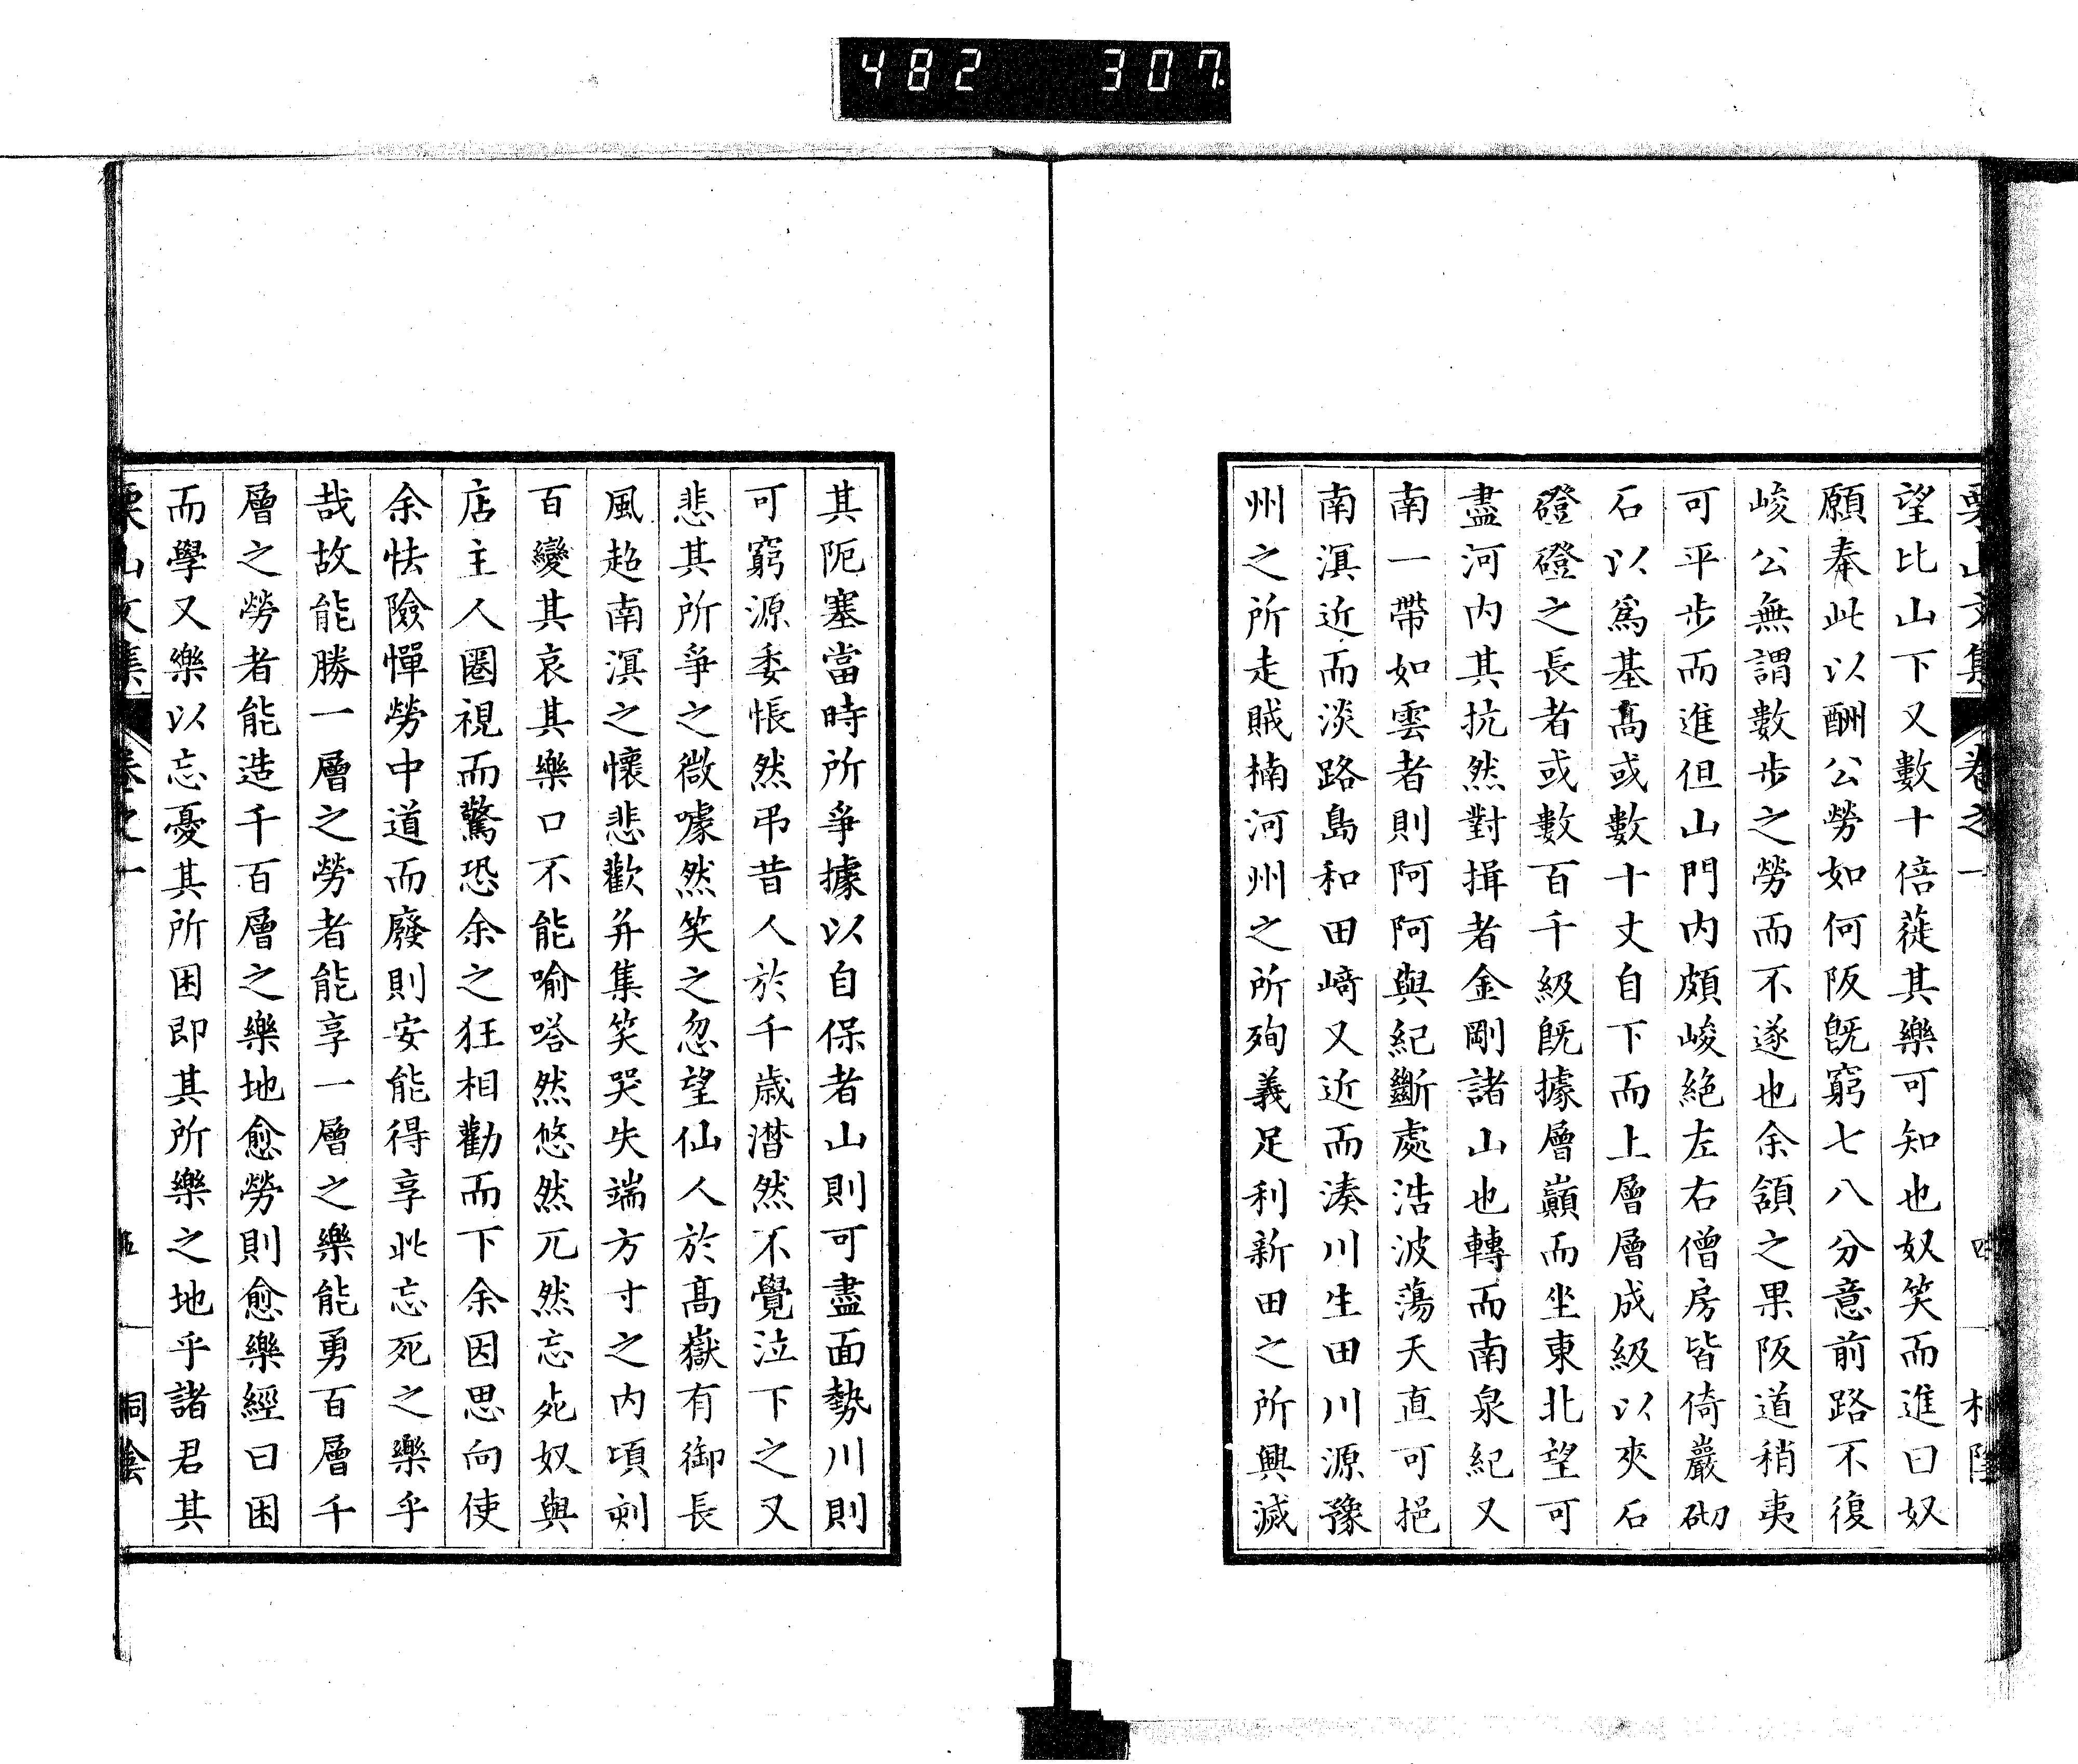 482 307
栗山文集 卷之一 四
望比山下又數十倍蓰其樂可知也奴笑而進曰奴
願奉此以酬公勞如何阪既窮七八分意前路不復
峻公無謂數步之勞而不遂也余頷之果阪道稍夷
可平步而進但山門内頗峻絶左右僧房皆倚巖砌
石以爲基高或數十丈自下而上層層成級以夾石
磴磴之長者或數百千級既據層巓而坐東北望可
盡河内其抗然對揖者金剛諸山也轉而南泉紀又
南一帶如雲者則阿阿與紀斷處浩波蕩天直可挹
南溟近而淡路島和田﨑又近而湊川生田川源豫
州之所走賊楠河州之所殉義足利新田之所興滅
其阨塞當時所爭據以自保者山則可盡面勢川則
可窮源委悵然弔昔人於千歳潸然不覺泣下之又
悲其所爭之微噱然笑之忽望仙人於高嶽有御長
風超南溟之懷悲歡并集笑哭失端方寸之内頃刻
百變其哀其樂口不能喻嗒然悠然兀然忘死奴與
店主人圈視而驚恐余之狂相勸而下余因思向使
余怯險憚勞中道而廢則安能得享此忘死之樂乎
哉故能勝一層之勞者能享一層之樂能勇百層千
層之勞者能造千百層之樂地愈勞則愈樂經曰困
而學又樂以忘憂其所困即其所樂之地乎諸君其
栗山文集 卷之一 五 桐陰